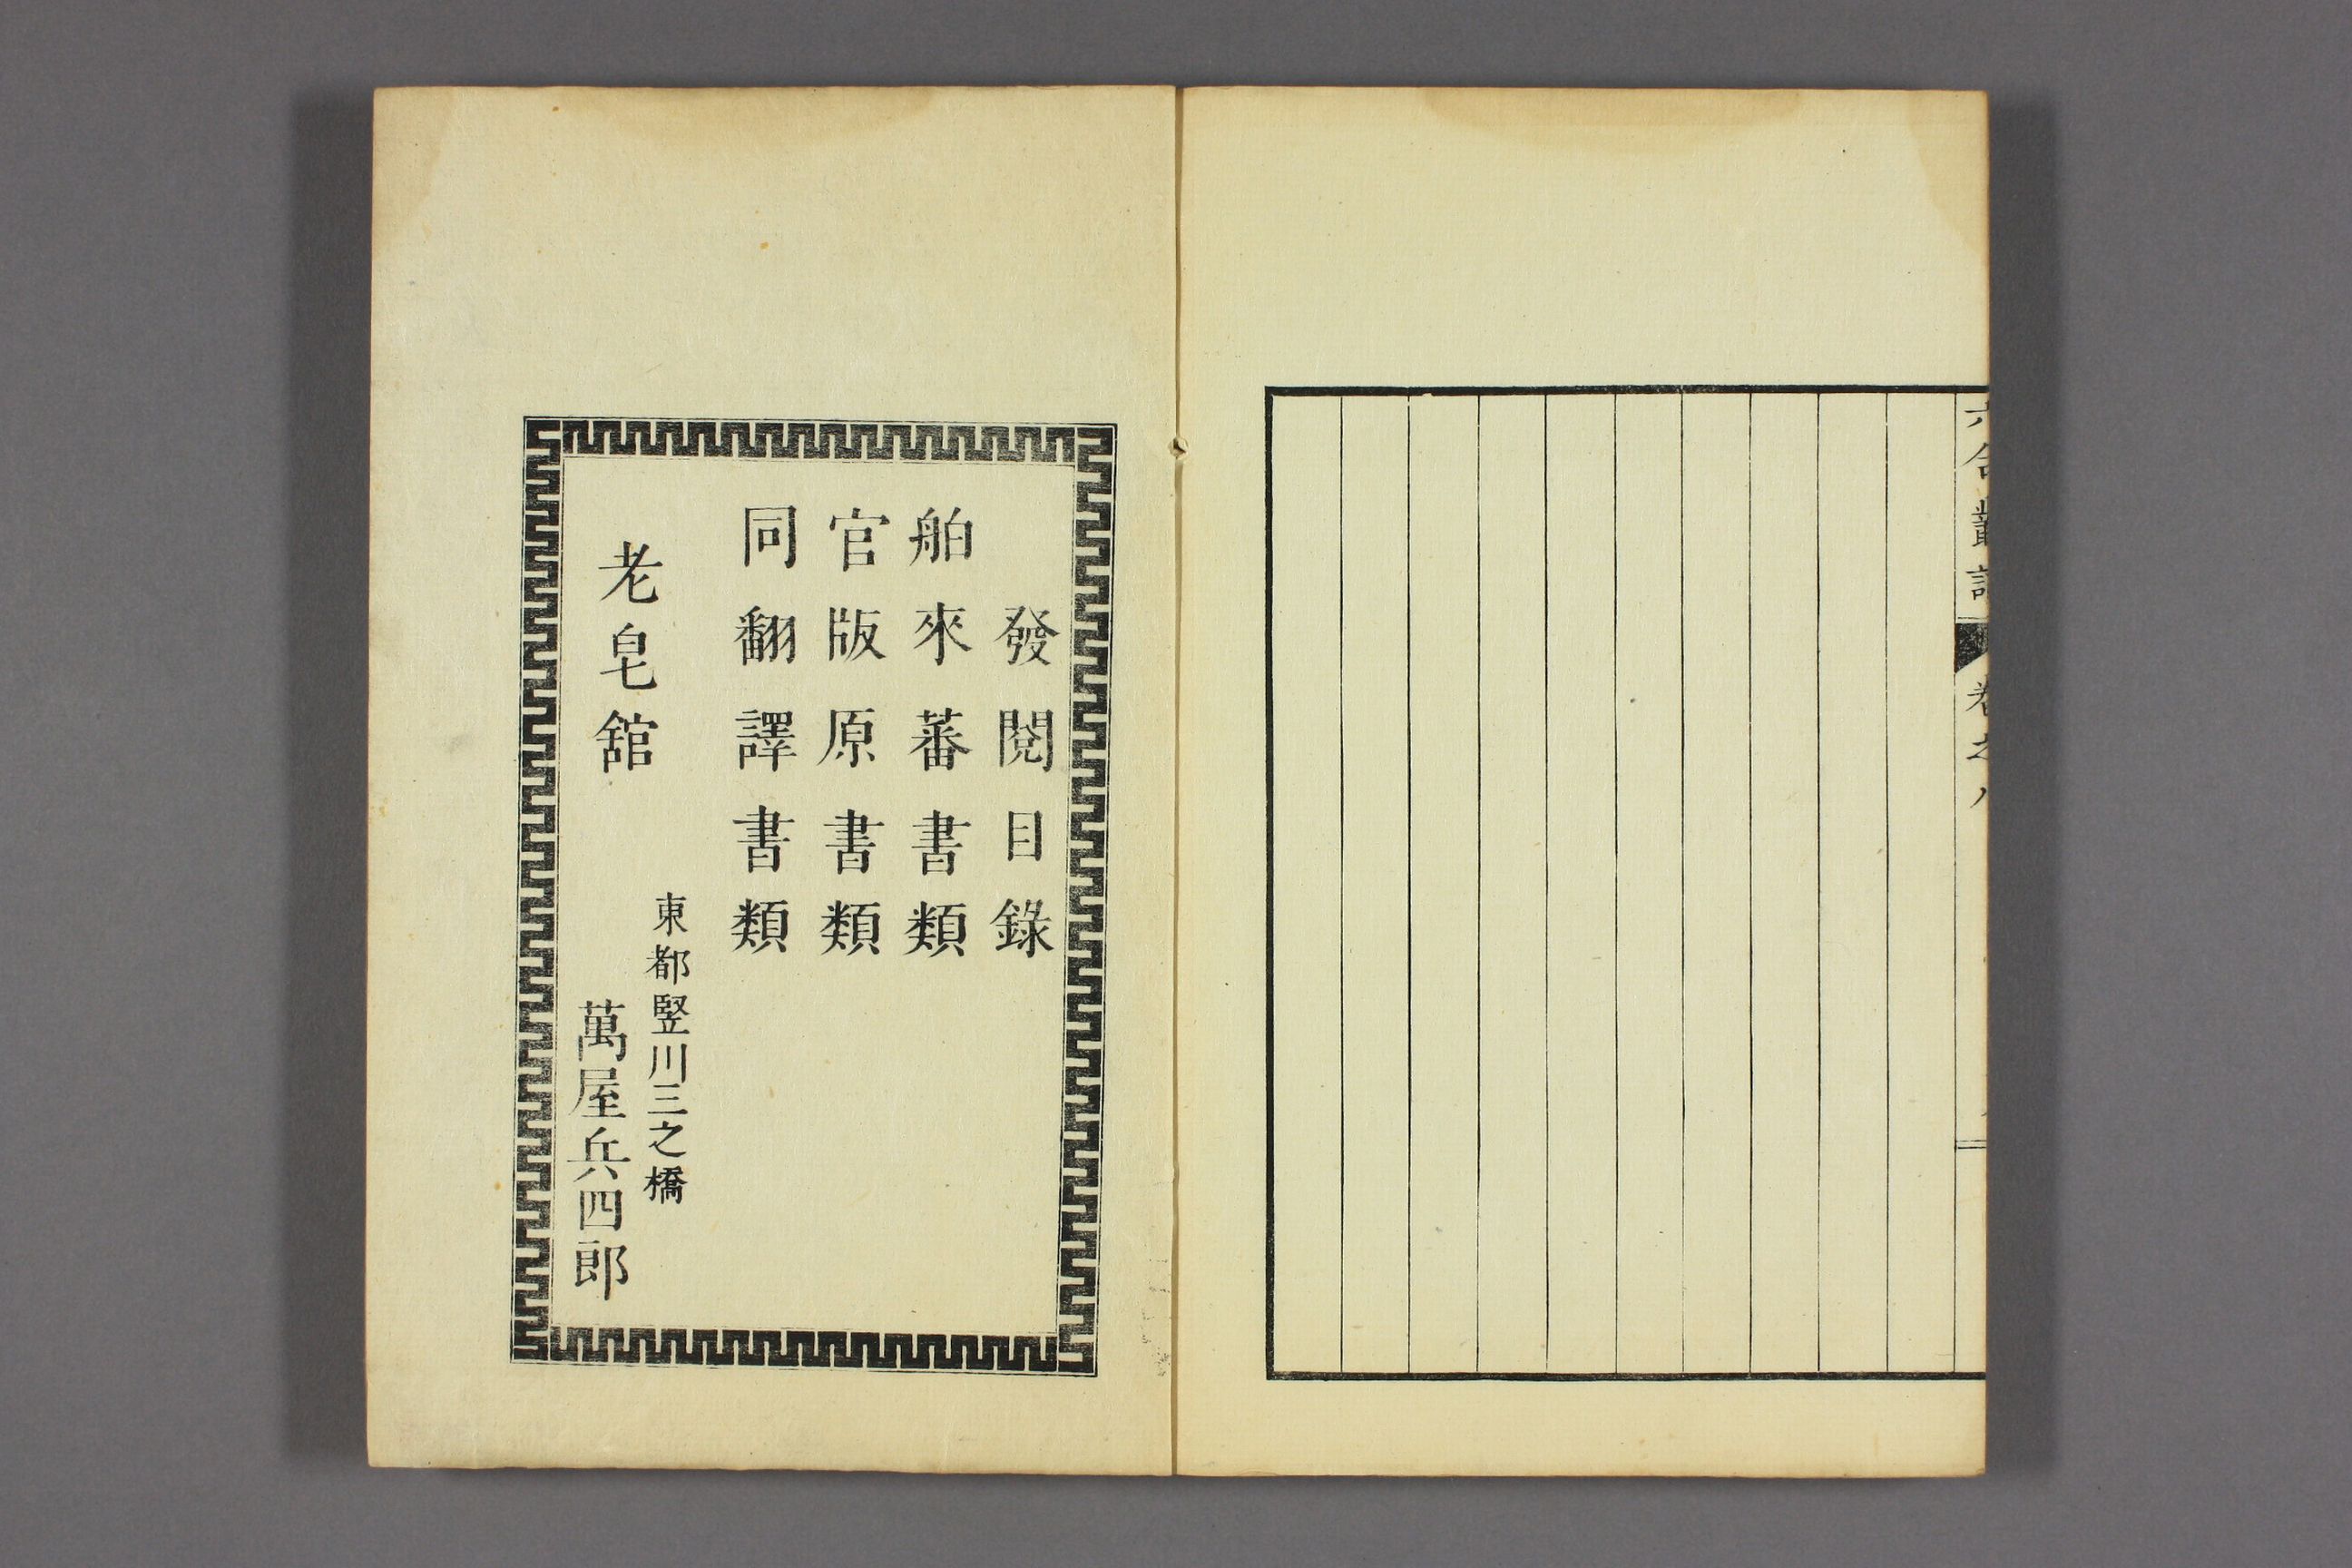 六合叢談
卷之八
發閱目錄
舶來蕃書類
官版原書類
同翻譯書類
老皂舘
東都竪川三之橋
萬屋兵四郎